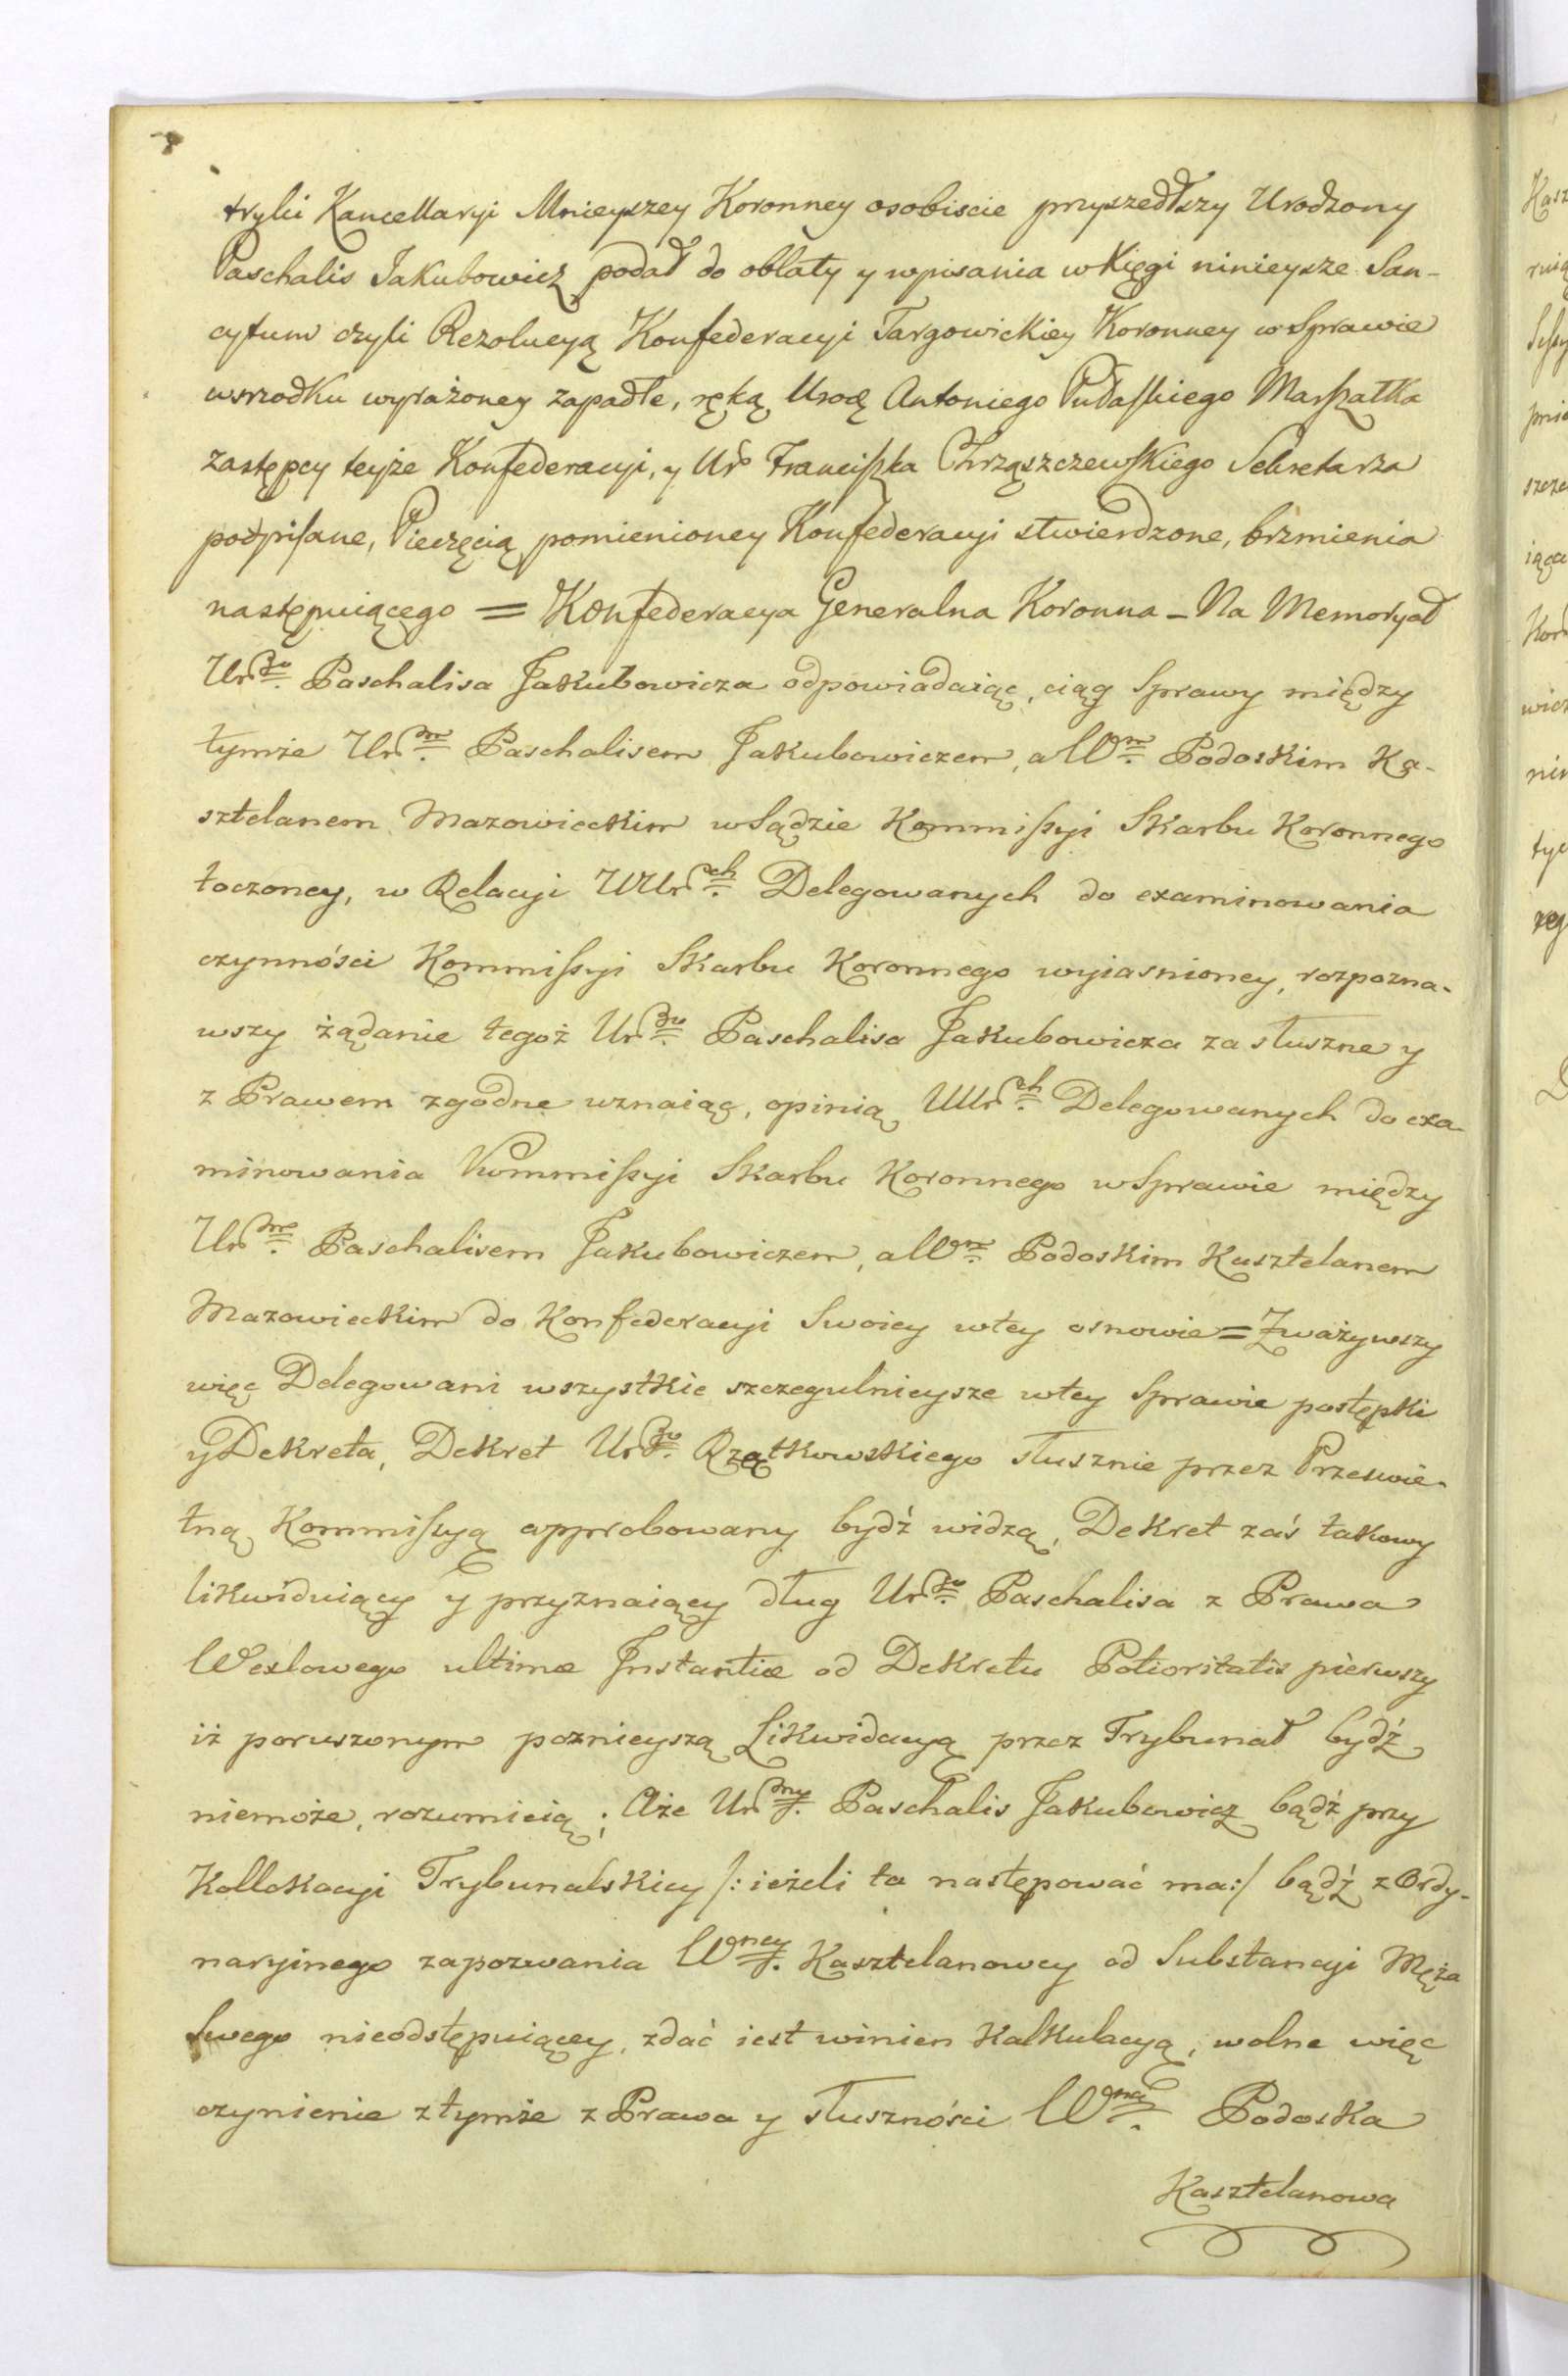 tryki Kancellaryi Mnieyszey Koronney osobiscie przyszedłszy Urodzony
Paschalis Jakubowicz podał do oblaty y wpisania w Xięgi ninieysze San-
cytum czyli Rezolucyą Konfederacyi Targowickiey Koronney w Sprawie
wsrzodku wyrażoney zapadłe, ręką Urodz Antoniego Pułaskiego Marszałka
zastępcy teyże Konfederacyi, y Ur° Franciszka Chrząszczewskiego Sekretarza
podpisane, Pieczęcią pomienioney Konfederacyi stwierdzone, brzmienia
następuiącego = Konfederacya Generalna Koronna – Na Memoryał
Urgo. Paschalisa Jakubowicza odpowiadaiąc, ciąg Sprawy między
tymże Urm. Paschalisem Jakubowiczem, a Wm. Podoskim Ka-
sztelanem Mazowieckim w Sądzie Kommissyi Skarbu Koronnego
toczoney, w Relacyi UUrch. Delegowanych do examinowania
czynności Kommissyi Skarbu Koronnego wyiasnioney, rozpozna-
wszy żądanie tegoż Urgo. Paschalisa Jakubowicza za słuszne y
z Prawem zgodne uznaiąc, opinią UUrch. Delegowanych do exa-
minowania Kommissyi Skarbu Koronnego w Sprawie między
Urm. Paschalisem Jakubowiczem, a Wm. Podoskim Kasztelanem
Mazowieckim do Konfederacyi Swoiey w tey osnowie = Zważywszy
więc Delegowani wszystkie szczegulnieysze w tey Sprawie postępki
y Dekreta, Dekret Urgo. Rzątkowskiego słusznie przez Przeswie-
tną Kommissyą approbowany bydź widzą, Dekret zaś takowy
likwiduiący y przyznaiący dług Urgo. Paschalisa z Prawa
Wexlowego ultimæ Instantiæ od Dekretu Potioritatis pierwszy
iż poruszonym poznieyszą Likwidacyą przez Trybunał bydź
niemoże, rozumieią; Aże Urdny. Paschalis Jakubowicz bądź przy
Kollokacyi Trybunalskiey /: ieżeli ta następować ma:/ bądź z Ordy-
naryinego zapozwania Wney. Kasztelanowey od Substancyi Męża
Swego nieodstępuiącey, zdać iest winien Kalkulacyą, wolne więc
czynienie z tymże z Prawa y słuszności Wna. Podoska
Kasztelanowa